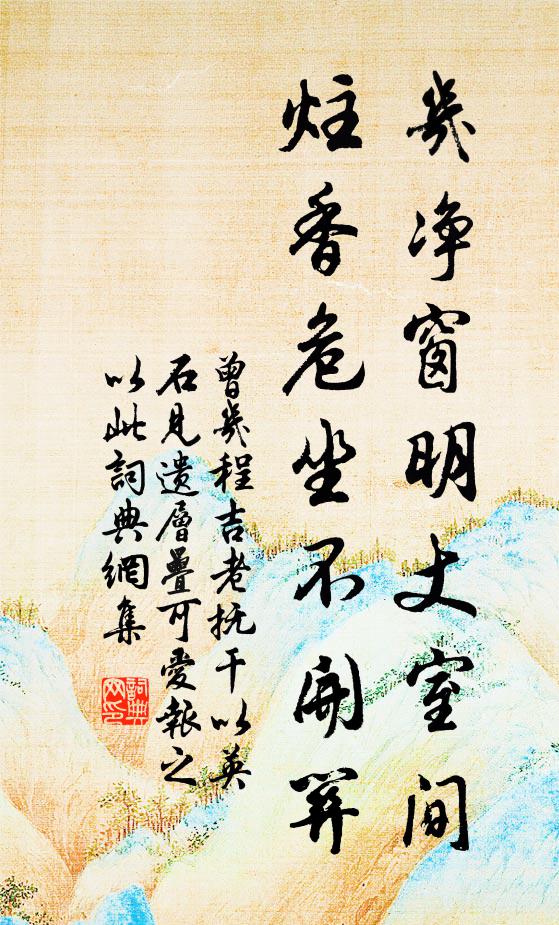 几净窗明丈室间
炷香危坐不开关
曾几程吉老抚干以英
石见遗层叠可爱报之
以此词典网集
词典网印